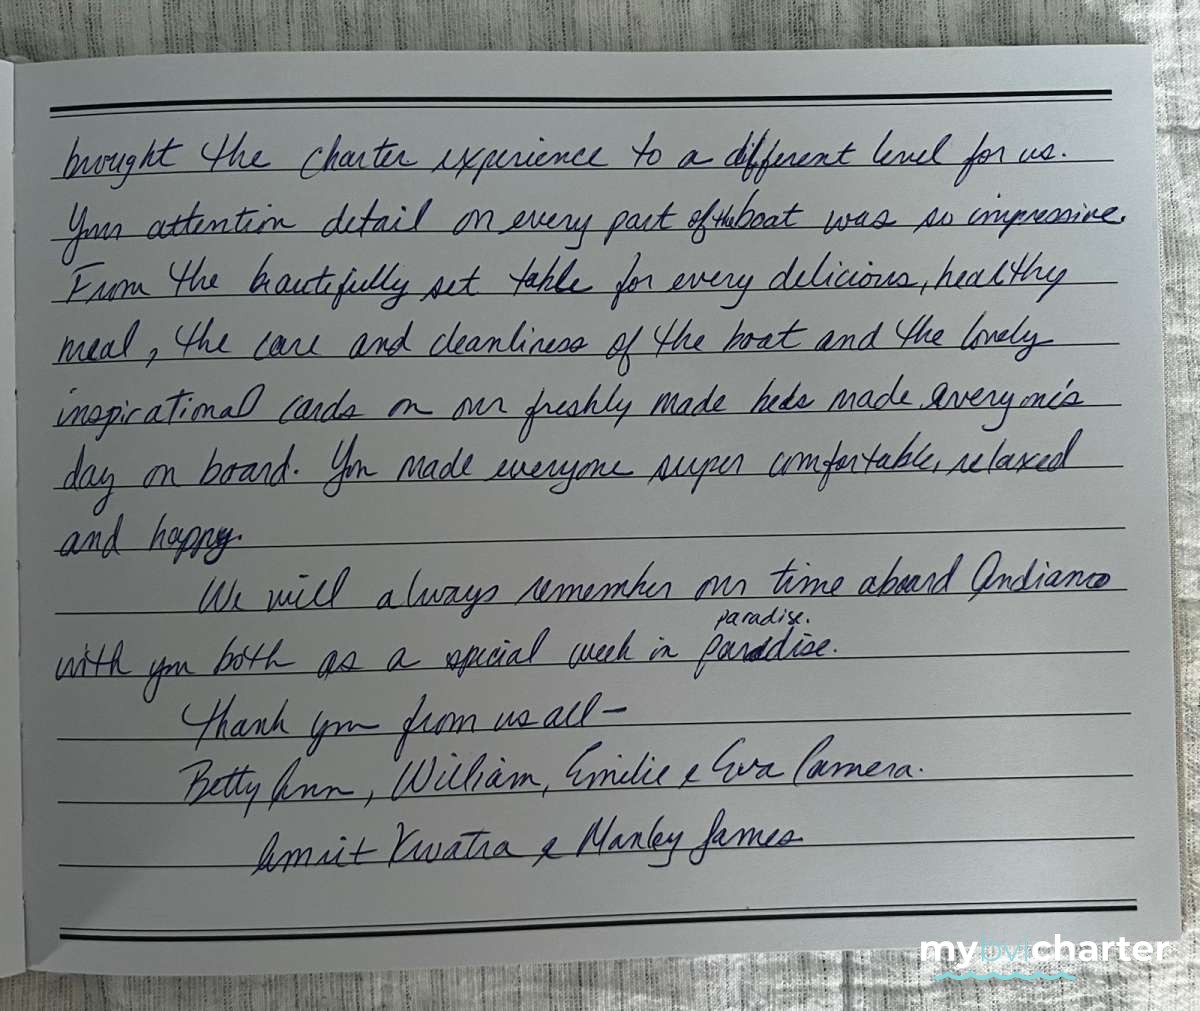 brought the charter experience to a different level for us.
Your attention detail on every part of the boat was so impressive.
From the beautifully set table for every delicious, healthy
meal, the care and cleanliness of the boat and the lovely
inspirational cards on our freshly made beds made everyone's
day on board. You made everyone super comfortable, relaxed
and happy.
We will always remember our time aboard Andiamo
paradise.
with you both as a special week in paradise.
Thank you from us all —
Betty Ann, William, Emilie & Eva Camera.
Amrit Kwatra & Manley James
mybvicharter